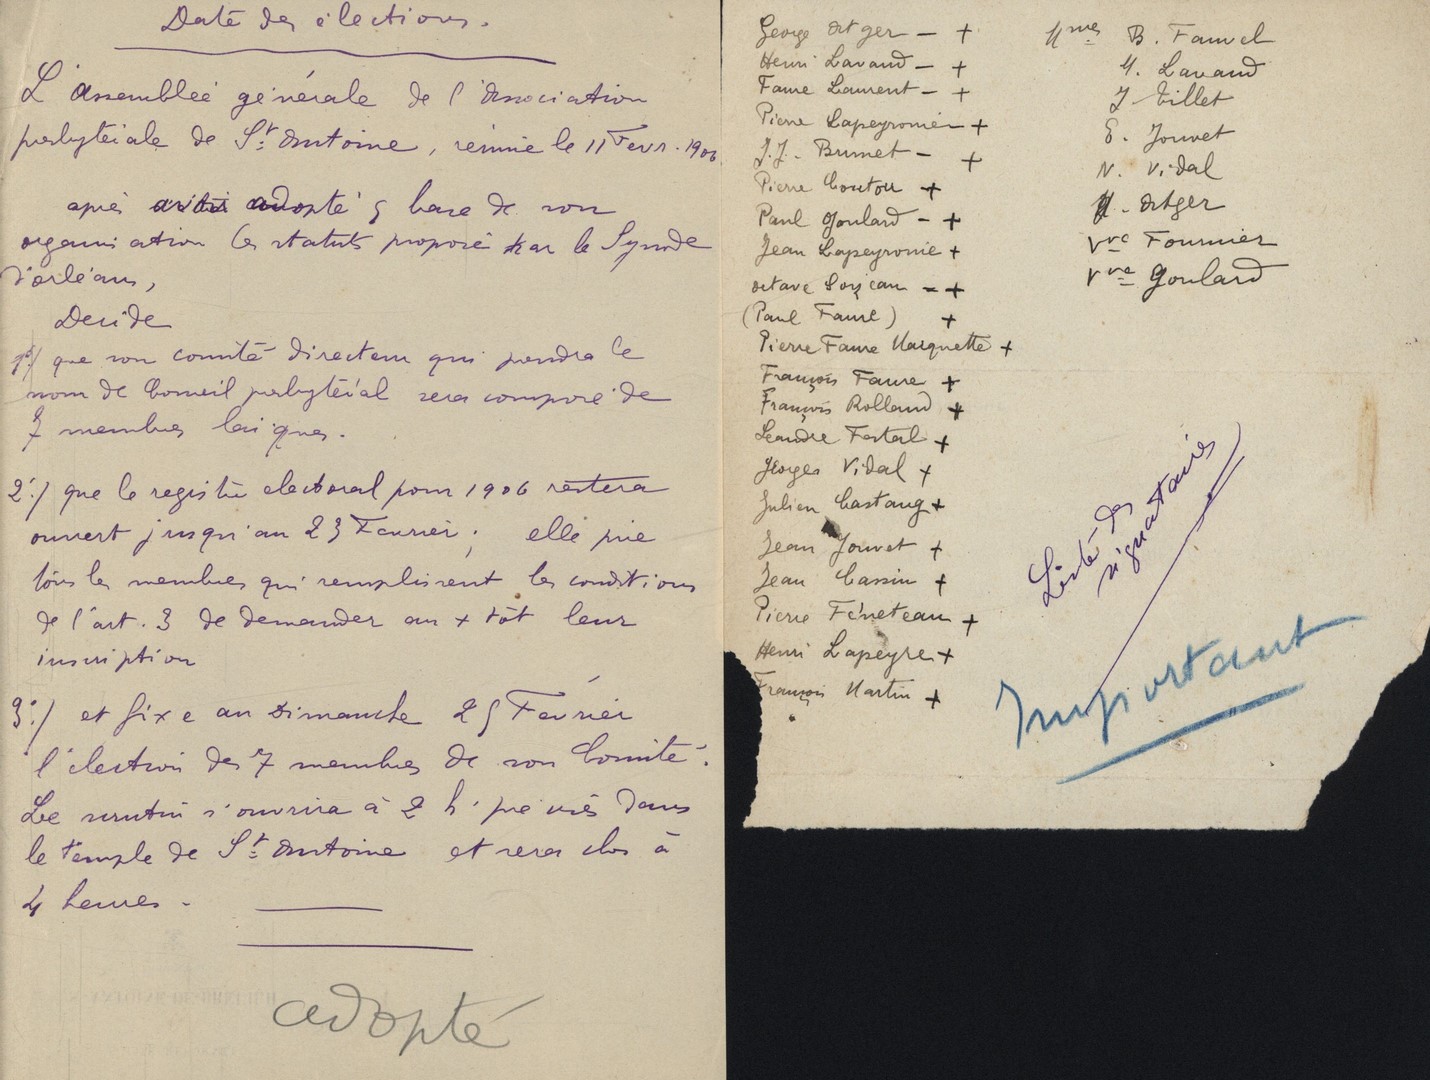 Date des élections.
L'Assemblée générale de l'Association
presbytérale de St. Antoine, réunie le 11 Fevr. 1906
après adopté base de son
organisation les statuts proposé par le Synode
d'orléans,
Decide
1º/ que son comité directeur qui prendra le
nom de Conseil presbytéral sera composé de
7 membres laïques.
2º/ que le registre electoral pour 1906 restera
ouvert jusqu'au 23 Fevrier ; elle prie
tous les membres qui remplissent les conditions
de l'art. 3 de demander au + tôt leur
inscription
3º/ et fixe au Dimanche 25 Février
l'élection des 7 membres de son Comité.
Le scrutin s'ouvrira à 2 h. précises dans
le temple de St Antoine et sera clos à
4 heures.
adopté
George Atger – +
Henri Lavaud – +
Faure Laurent – +
Pierre Lapeyronie +
J.J. Brunet – +
Pierre Coutou +
Paul Goulard – +
Jean Lapeyronie +
octave Loiseau – +
(Paul Faure) +
Pierre Faure Marquette +
François Faure +
François Rolland +
Leandre Festal +
Georges Vidal +
Julien Castaug +
Jean Jouvet +
Jean Cassin +
Pierre Féneteau +
Henri Lapeyre +
François Martin +
Mmes B. Fauvel
M. Lavaud
J Tillet
E. Jouvet
N. Vidal
M. Atger
Vve Fournier
Vve Goulard
Liste des
signataires
Important